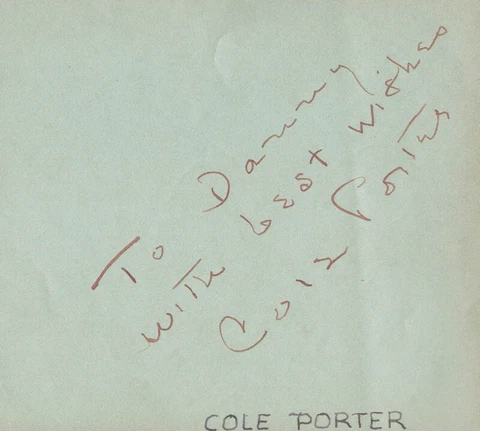 To Danny
with best wishes
Cole Porter
COLE PORTER